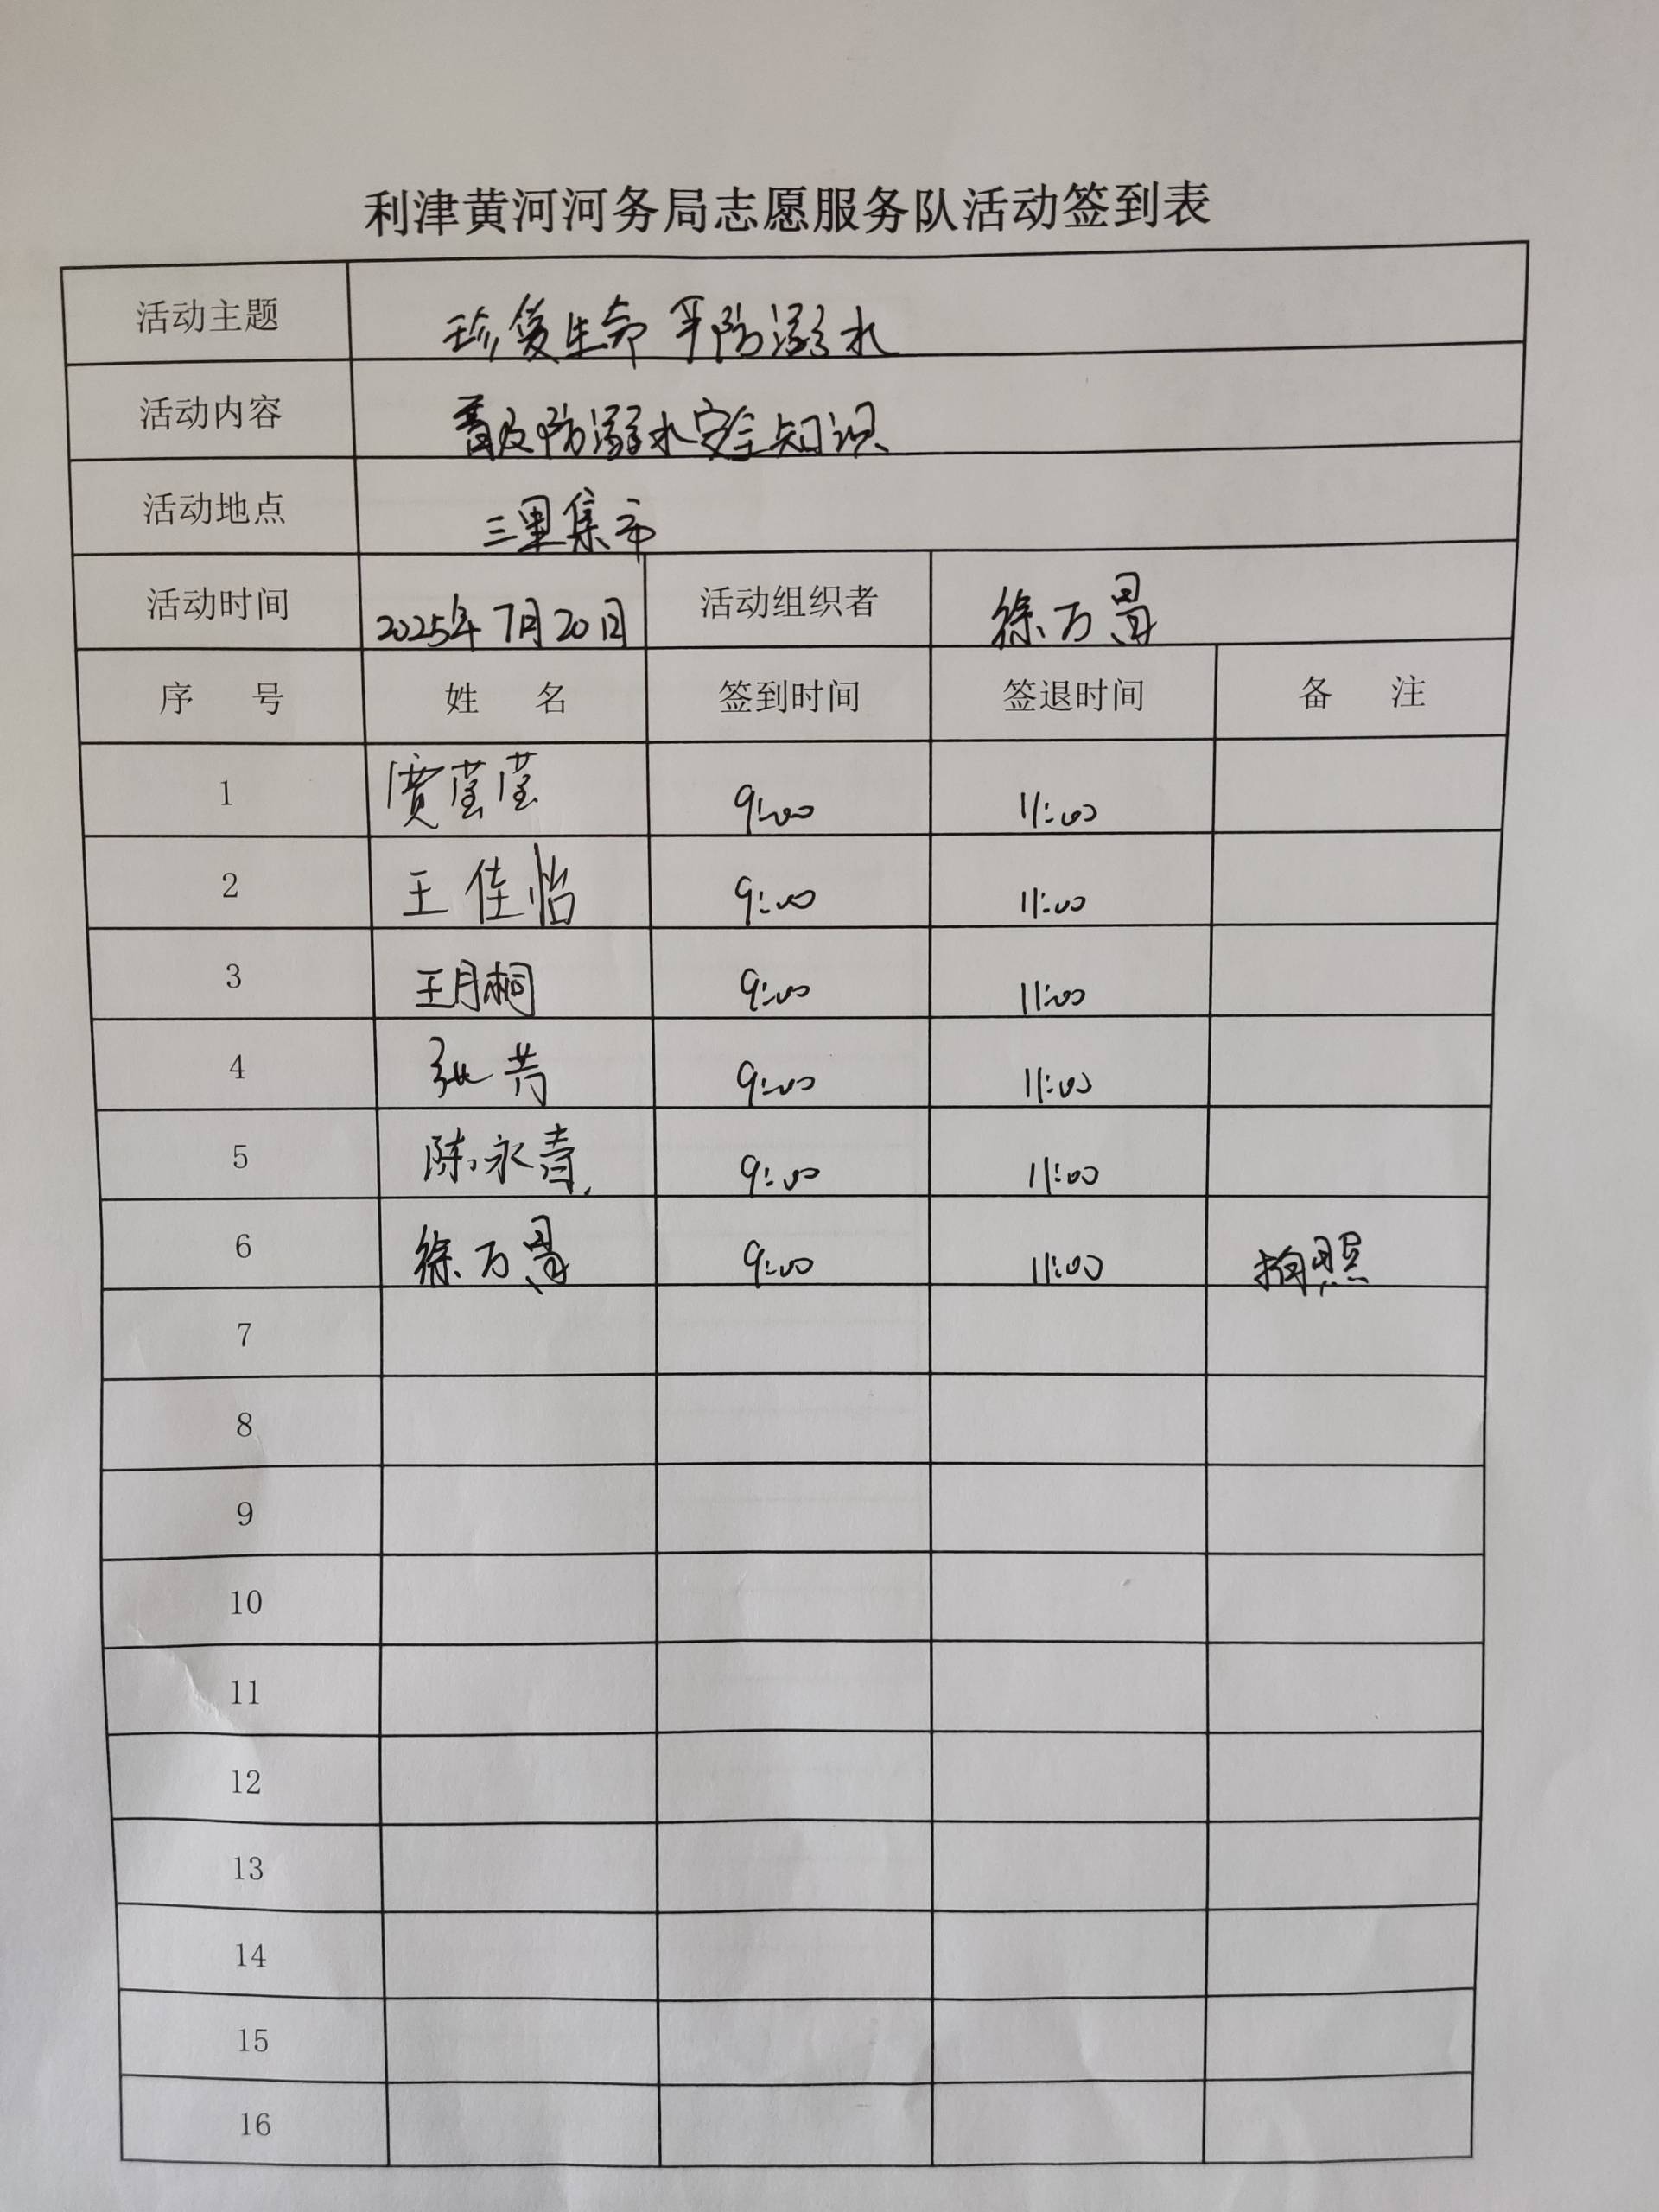 利津黄河河务局志愿服务队活动签到表
活动主题 珍爱生命 平防溺水
活动内容 普及防溺水安全知识
活动地点 三里集市
活动时间 2025年7月20日 活动组织者 徐万昌
序 号 姓 名 签到时间 签退时间 备 注
1 贾莹莹 9:00 11:00
2 王佳怡 9:00 11:00
3 王月桐 9:00 11:00
4 张芳 9:00 11:00
5 陈永青 9:00 11:00
6 徐万昌 9:00 11:00 拍照
7
8
9
10
11
12
13
14
15
16